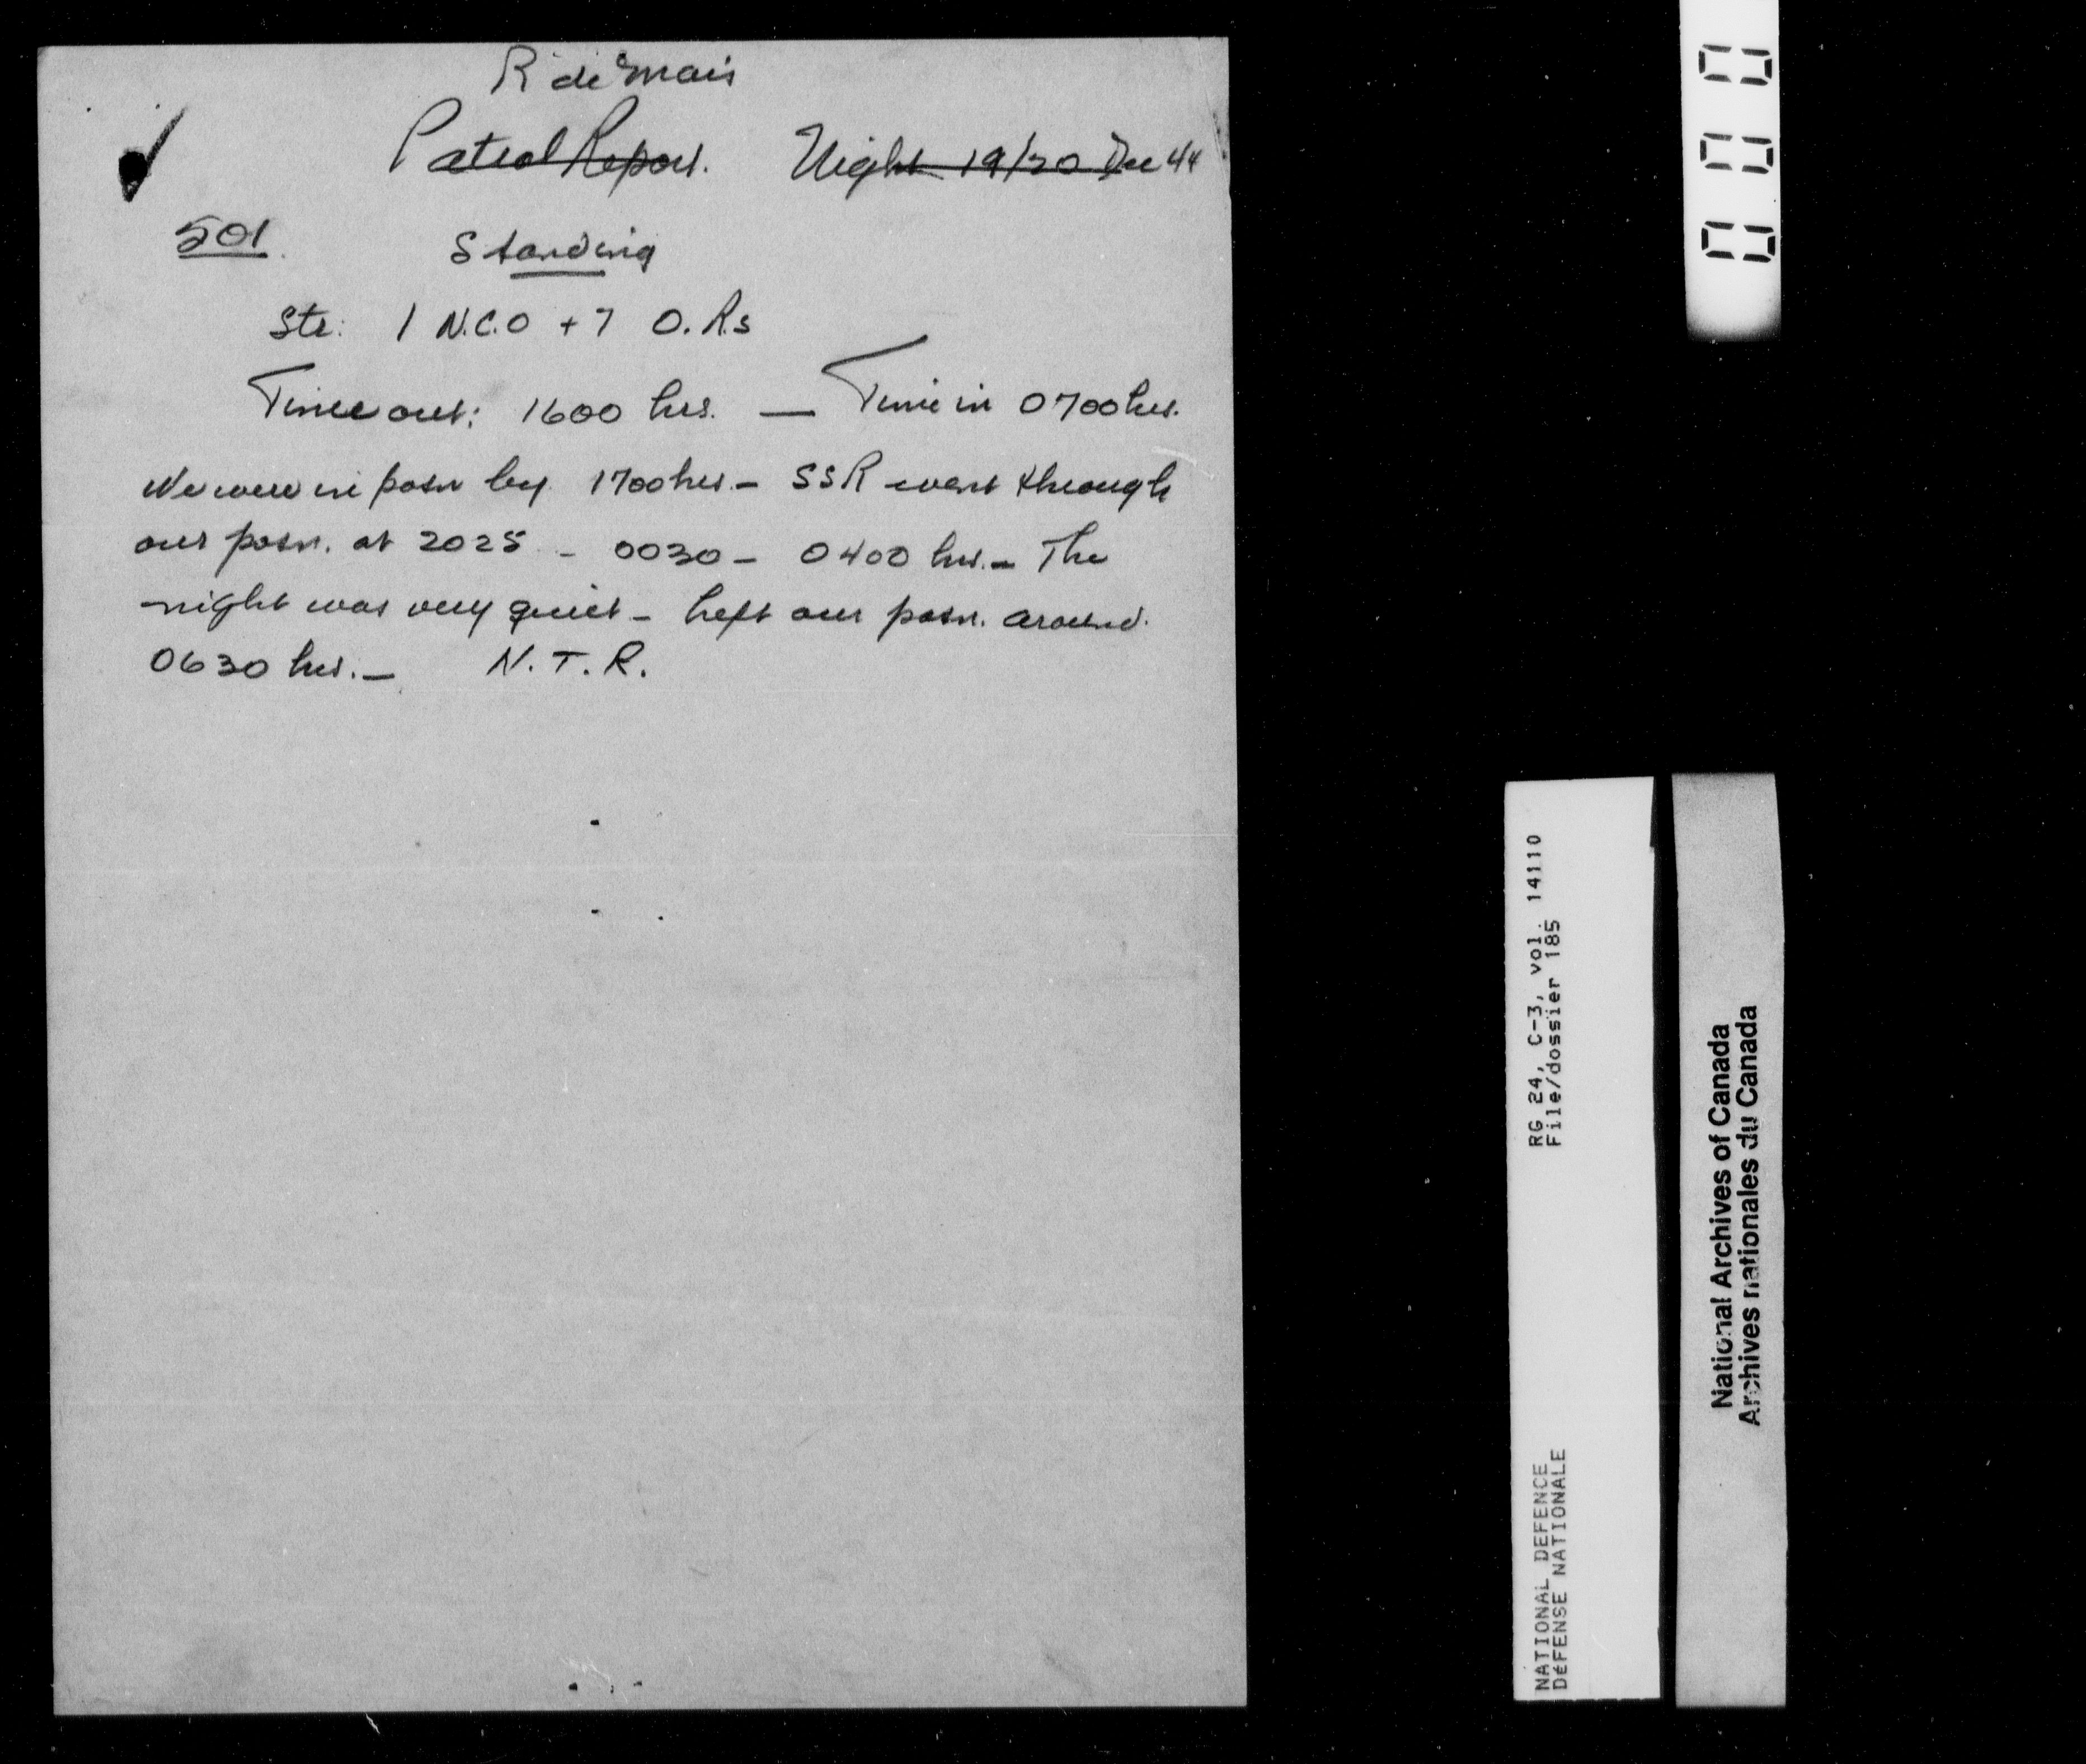 R de Mais
Patrol Report. Night 19/20 Dec 44
501.
Standing
Str: 1 N.C.O + 7 O.R.s
Time out: 1600 hrs. — Time in 0700 hrs.
We were in posn by 1700 hrs. - SSR went through
our posn. at 2025 - 0030 - 0400 hrs. - The
night was very quiet - Left our posn. around.
0630 hrs. - N.T.R.
000
RG 24, C-3, vol. 14110
File/dossier 185
NATIONAL DEFENCE
DéFENSE NATIONALE
National Archives of Canada
Archives nationales du Canada